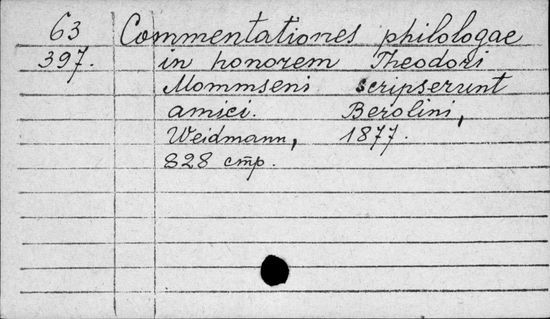 63 Commentationes philologae
397. in honorem Theodori
Mommseni scripserunt
amici. Berolini,
Weidmann, 1877.
828 стр.